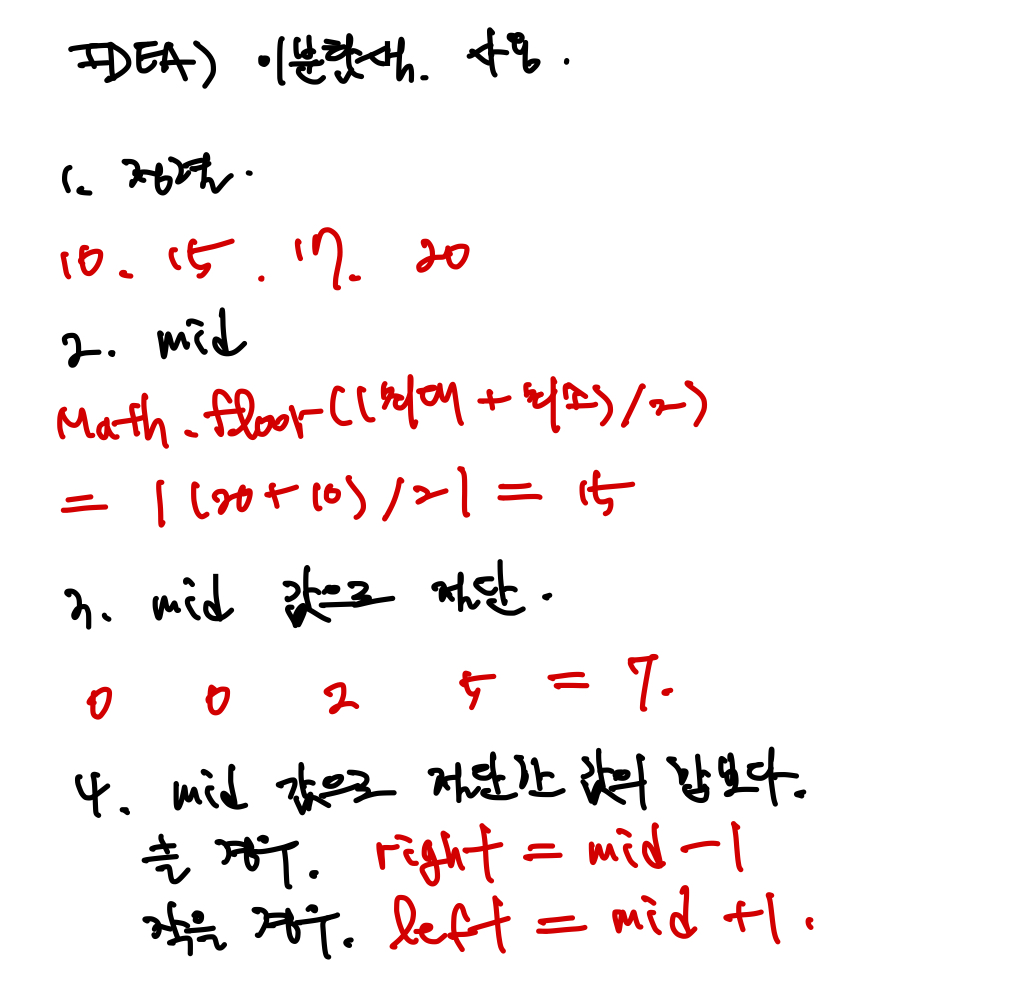 IDEA) 이분탐색. 사용.
1. 정렬.
10. 15. 17. 20
2. mid
Math.floor((최대 + 최소)/2)
= | (20+10) /2| = 15
3. mid 값으로 재단.
0 0 2 5 = 7.
4. mid 값으로 재단한 값이 답보다.
큰 경우. right = mid -1
작은 경우. left = mid +1.